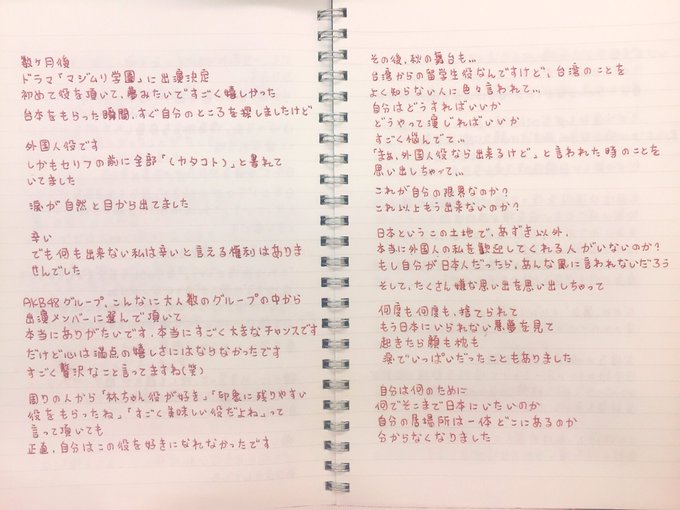 数ヶ月後
ドラマ「マジムリ学園」に出演決定
初めて役を頂いて、夢みたいですごく嬉しかった
台本をもらった瞬間、すぐ自分のところを探しましたけど
外国人役です
しかもセリフの前に全部「（カタコト）」と書れて
いてました
涙が自然と目から出てました
辛い
でも何も出来ない私は辛いと言える権利はありま
せんでした
AKB48グループ、こんなに大人数のグループの中から
出演メンバーに選んで頂いて
本当にありがたいです、本当にすごく大きなチャンスです
だけど心は満点の嬉しさにはならなかったです
すごく贅沢なこと言ってますね(笑)
周りの人から「林ちゃん役が好き」「印象に残りやすい
役をもらったね」「すごく美味しい役だよね」って
言って頂いても
正直、自分はこの役を好きになれなかったです
その後、秋の舞台も...
台湾からの留学生役なんですけど、台湾のことを
よく知らない人に色々言われて...
自分はどうすればいいか
どうやって演じればいいか
すごく悩んでて...
「まぁ、外国人役なら出来るけど」と言われた時のことを
思い出しちゃって...
これが自分の限界なのか?
これ以上もう出来ないのか?
日本というこの土地で、あずき以外、
本当に外国人の私を歓迎してくれる人がいないのか?
もし自分が日本人だったら、あんな風に言われないだろう
そして、たくさん嫌な思い出を思い出しちゃって
何度も何度も、捨てられて
もう日本にいられない悪夢を見て
起きたら顔も枕も
涙でいっぱいだったこともありました
自分は何のために
何でそこまで日本にいたいのか
自分の居場所は一体どこにあるのか
分からなくなりました